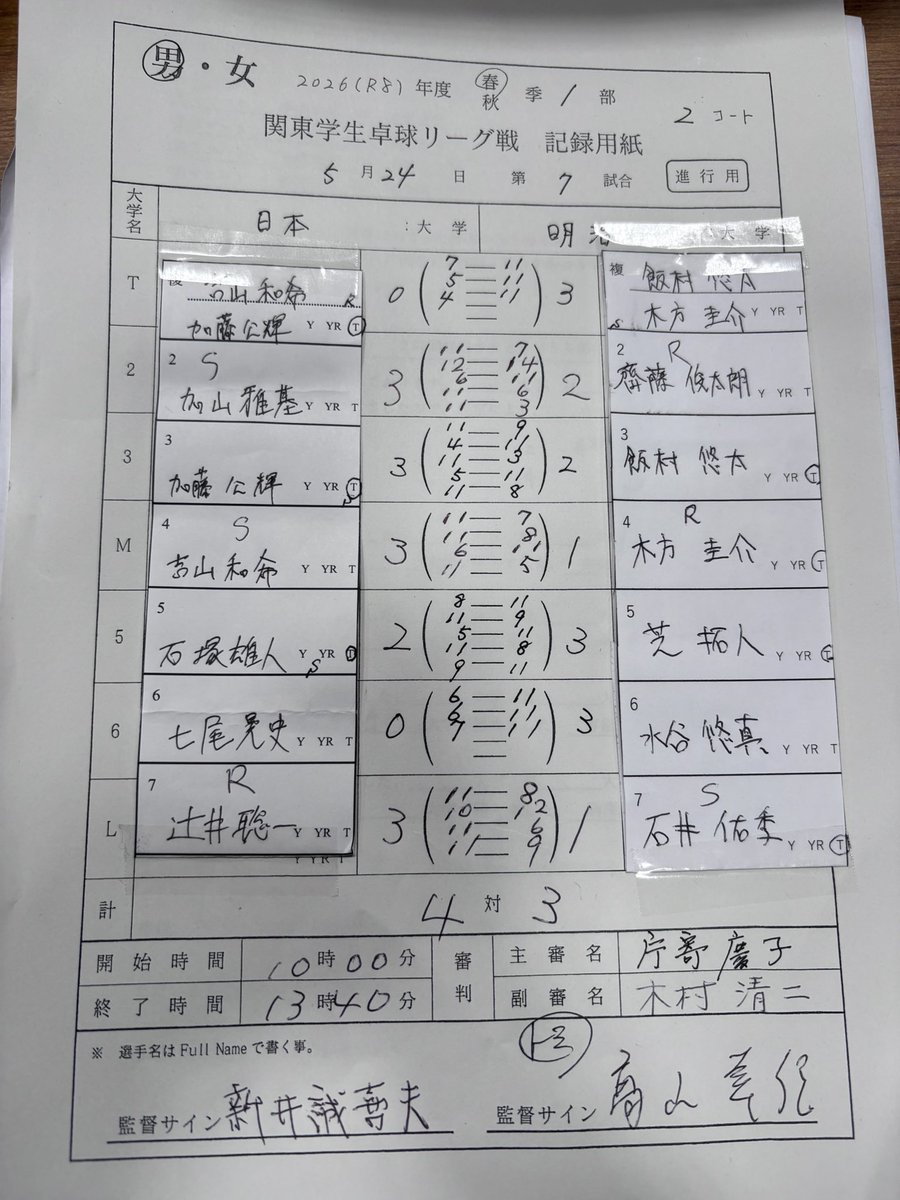 男・女
2026(R8) 年度 春 秋 季 1 部
2 コート
関東学生卓球リーグ戦 記録用紙
5 月 24 日 第 7 試合 進行用
大学名 日本 : 大学 明治 : 大学
T 複 吉山和希 R 加藤公輝 Y YR T 0 ( 7 — 11 5 — 11 4 — 11 ) 3 複 飯村 悠太 S 木方 圭介 Y YR T
2 2 S 加山雅基 Y YR T 3 ( 11 — 7 12 — 14 6 — 11 11 — 6 11 — 3 ) 2 2 R 齊藤 俊太朗 Y YR T
3 3 加藤公輝 Y YR T S 3 ( 11 — 9 4 — 11 11 — 3 5 — 11 11 — 8 ) 2 3 飯村 悠太 Y YR T
M 4 S 吉山和希 Y YR T 3 ( 11 — 7 11 — 8 6 — 11 11 — 5 ) 1 4 R 木方 圭介 Y YR T
5 5 石塚雄人 Y YR T S 2 ( 8 — 11 11 — 9 5 — 11 11 — 8 9 — 11 ) 3 5 芝 拓人 Y YR T
6 6 七尾晃史 Y YR T 0 ( 6 — 11 9 — 11 7 — 11 ) 3 6 水谷 悠真 Y YR T
L 7 R 辻井聡一 Y YR T 3 ( 11 — 8 10 — 12 11 — 6 11 — 9 ) 1 7 S 石井 佑季 Y YR T
Y YR T
計 4 対 3
開始時間 10時00分 審判 主審名 片寄慶子
終了時間 13時40分 副審名 木村 清二
※ 選手名はFull Nameで書く事。
監督サイン 新井誠喜夫 監督サイン 髙山幸信